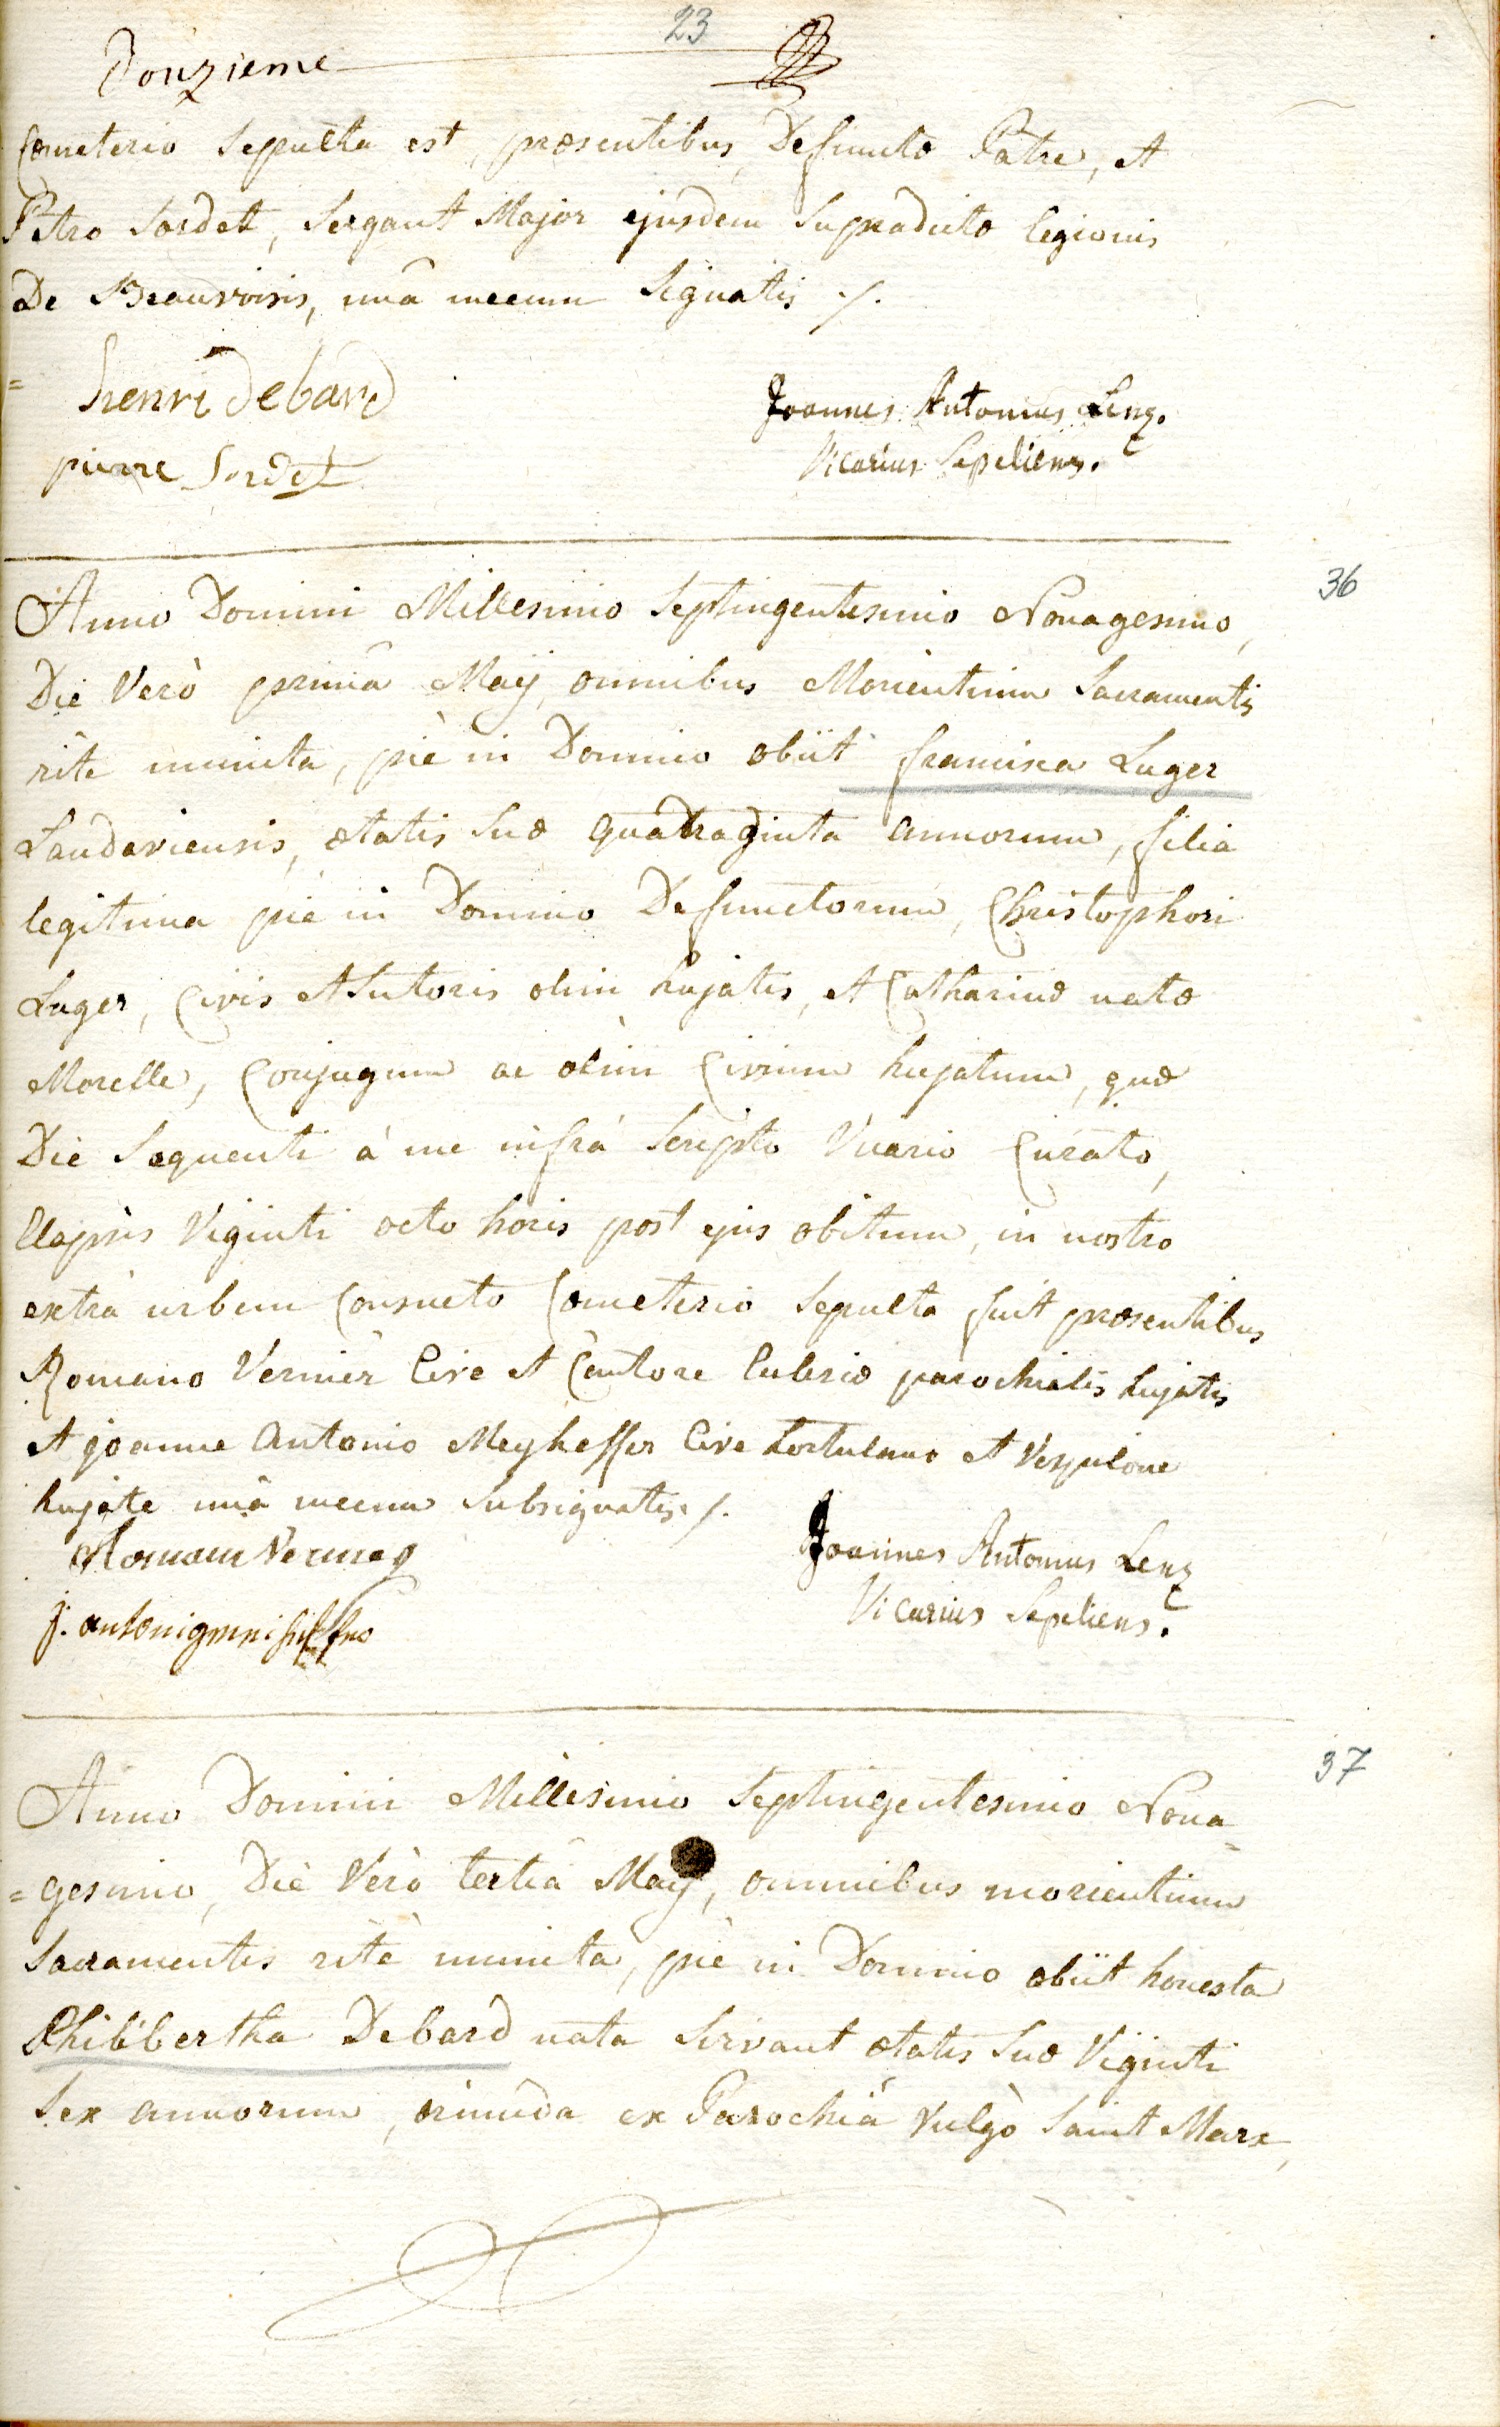 23
Douzieme
Cœmeterio Sepulta est, præsentibus, Defunctæ Patre, et
Petro Sordet, Sergant Major ejusdem Supradictæ legionis
De Beauvoisis, unâ mecum Signatis ./.
henri debard
Joannes Antonius Lenz.
pierre Sordet
Vicarius Sepeliens.
36
Anno Domini Millesimo Septingentesimo Nonagesimo,
Die Verò primâ Maÿ, omnibus Morientium Sacramentis
rite munita, piè in Domino obiit francisca Luger
Landaviensis, ætatis Suæ quadraginta annorum, filia
legitima piè in Domino Defunctorum, Christophori
Luger, Civis et Sutoris olim hujatis, et Catharinæ natæ
Morelle, Conjugum ac olim Civium hujatum, quæ
Die Sequenti à me infrà Scripto Vicario Curato,
Elapsis Viginti octo horis post ejus obitum, in nostro
extrà urbem Consueto Cœmeterio Sepulta fuit præsentibus
Romano Vernier Cive et Cantore Eclesiæ parochialis hujatis
et joanne Antonio Meyheffer Cive hortulano et Vespilone
hujate unà mecum Subsignatis ./.
Joannes Antonius Lenz
Vicarius Sepeliens.
37
Anno Domini Millesimo Septingentesimo Nona=
=gesimo, Die Verò tertiâ Maÿ, omnibus morientium
Sacramentis ritè munita, piè in Domino obiit honesta
Philibbertha Debard nata Servant ætatis Suæ Viginti
Sex annorum, oriunda ex Parochiâ Vulgò Saint Marx,